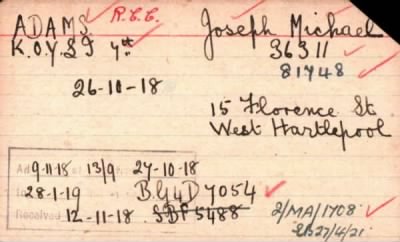 ADAMS R.E.E. Joseph Michael
K.O.Y.L.I 4th 36311
81748
26-10-18
15 Florence St
West Hartlepool
9-11-18 13/9 27-10-18
28-1-19 B.G4D 7054
Received 12-11-18 SBF 5488
2/MA/1708
27/4/21